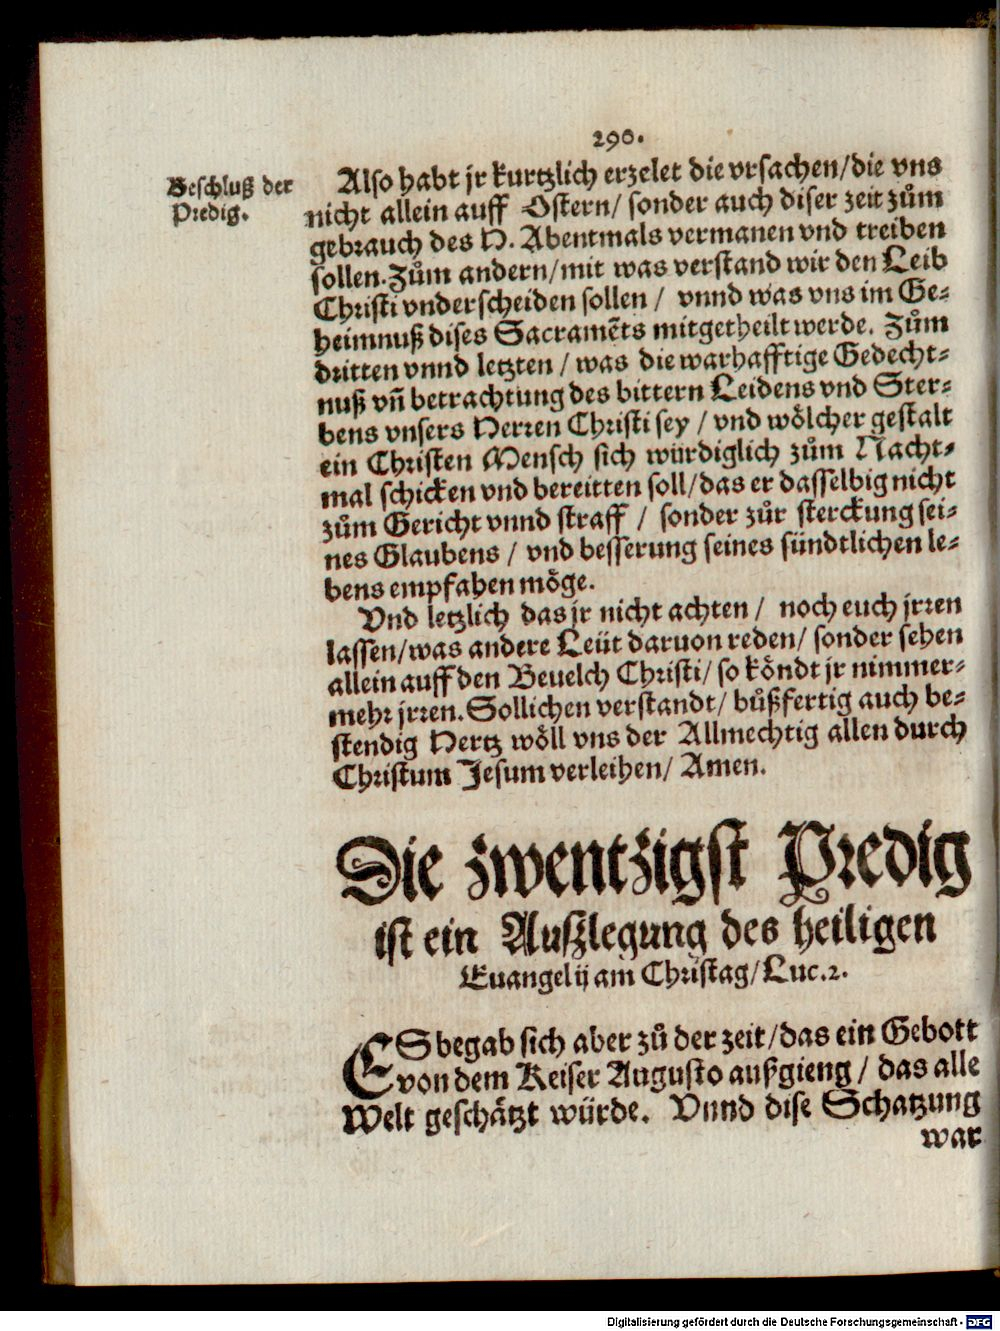 290.
Beschluß der
Predig.
Also habt jr kurtzlich erzelet die vrsachen/die vns
nicht allein auff Ostern/ sonder auch diser zeit zům
gebrauch des H. Abentmals vermanen vnd treiben
sollen. Zům andern/mit was verstand wir den Leib
Christi vnderscheiden sollen / vnnd was vns im Ge-
heimnuß dises Sacramẽts mitgetheilt werde. Zům
dritten vnnd letzten / was die warhafftige Gedecht-
nuß vñ betrachtung des bittern Leidens vnd Ster-
bens vnsers Herren Christi sey / vnd wölcher gestalt
ein Christen Mensch sich würdiglich zům Nacht-
mal schicken vnd bereitten soll/das er dasselbig nicht
zům Gericht vnnd straff / sonder zůr sterckung sei-
nes Glaubens / vnd besserung seines sündtlichen le-
bens empfahen möge.
Vnd letzlich das jr nicht achten / noch euch jrren
lassen/was andere Leüt daruon reden/ sonder sehen
allein auff den Beuelch Christi/ so köndt jr nimmer-
mehr jrren. Sollichen verstandt/ bůßfertig auch be-
stendig Hertz wöll vns der Allmechtig allen durch
Christum Jesum verleihen/ Amen.
Die zwentzigst Predig
ist ein Außlegung des heiligen
Euangelij am Christag/Luc.2.
ES begab sich aber zů der zeit/das ein Gebott
von dem Keiser Augusto außgieng / das alle
Welt geschätzt würde. Vnnd dise Schatzung
war
Digitalisierung gefördert durch die Deutsche Forschungsgemeinschaft - DFG